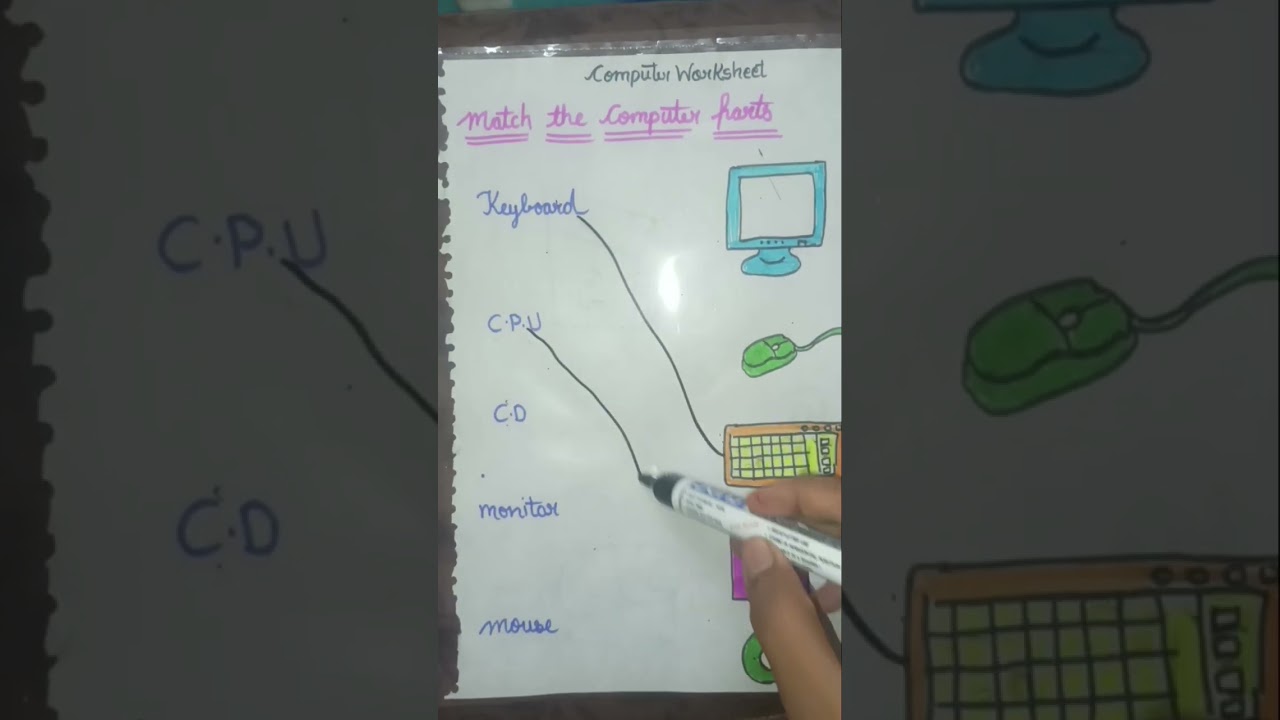 Computer Worksheet
Match the Computer parts
Keyboard
C.P.U
C.D
monitar
mouse